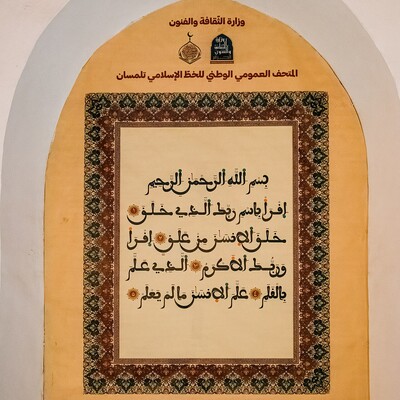 وزارة الثقافة والفنون
المتحف العمومي الوطني للخط الإسلامي تلمسان
بسم الله الرحمن الرحيم
إقرأ باسم ربك الذي خلق
خلق الإنسن من علق إقرأ
وربك الأكرم الذي علم
بالقلم علم الإنسن ما لم يعلم